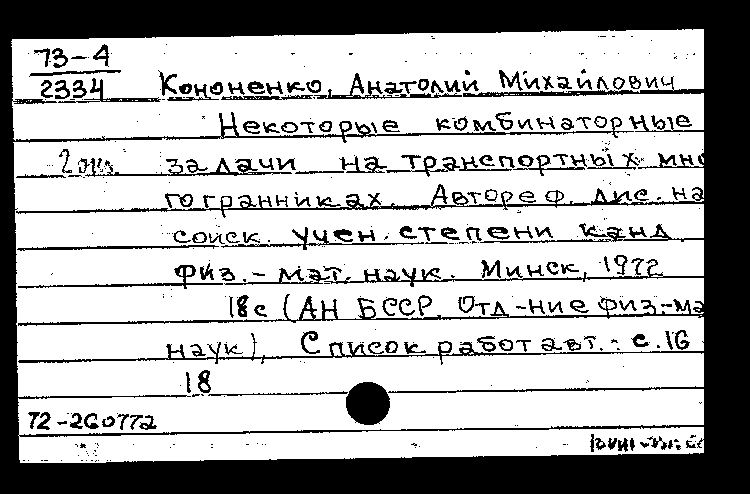 73-4
2334
Кононенко, Анатолий Михайлович
Некоторые комбинаторные
2 экз. задачи на транспортных мно
гогранниках. Автореф. дис. на
соиск. учен. степени канд.
физ.-мат. наук. Минск, 1972
18 с (АН БССР. Отд-ние физ.-ма
наук), Список работ авт.: с. 16-
18
72-260772